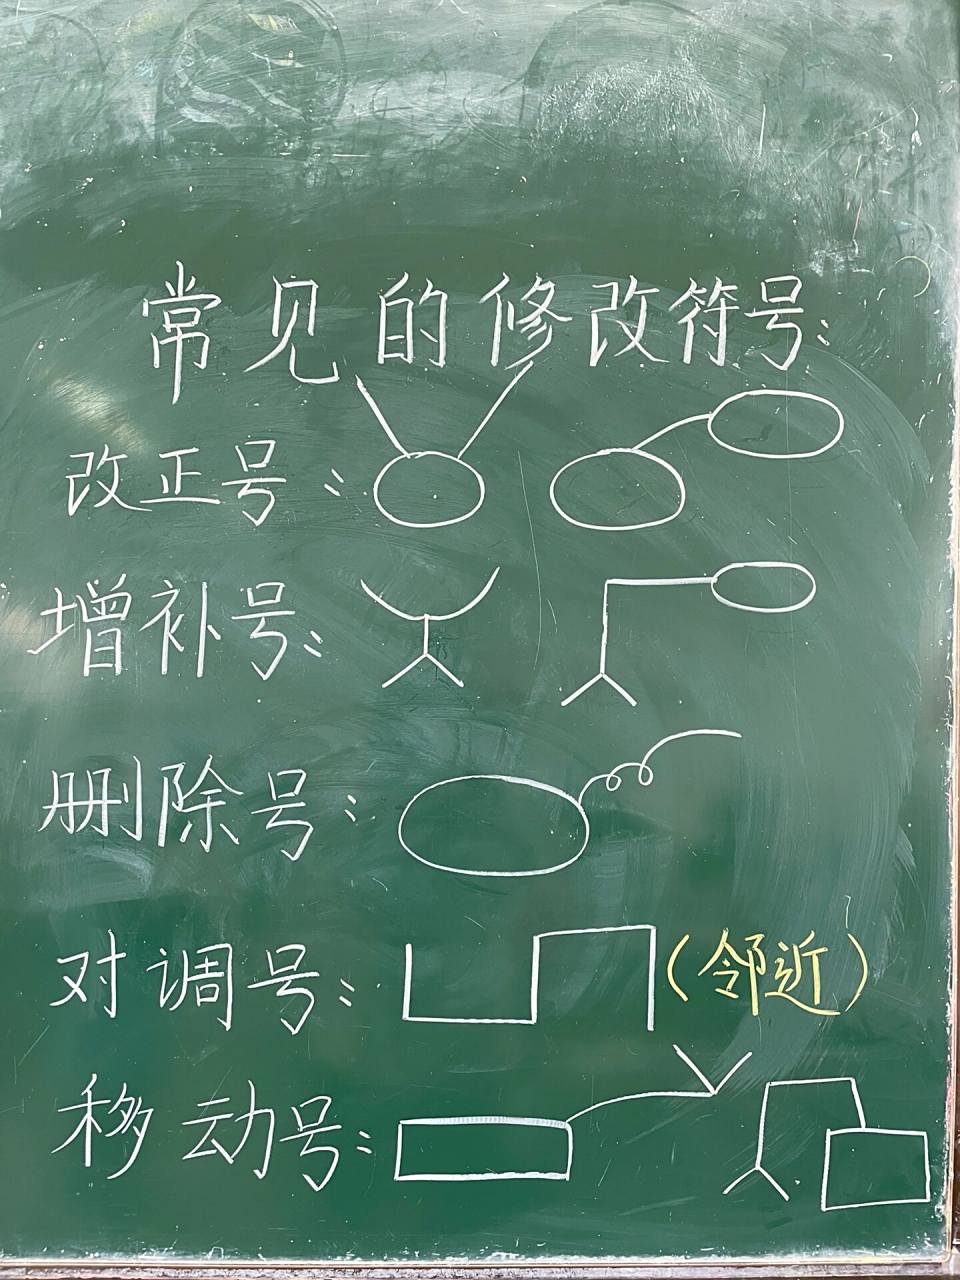 常见的修改符号:
改正号:
增补号:
删除号:
对调号: (邻近)
移动号: